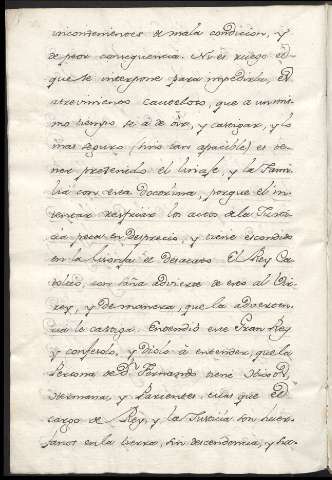 inconvenientes de mala condicion, y
de peor consequencia. No es ruego el
que se interpone para impedirla, es
atrevimiento cauteloso, que a un mis-
mo tiempo se à de oìr, y castigar, y lo
mas seguro (sino tan apacible) es te-
ner prevenido el linaje, y la Fami-
lia con esta Doctrina, porque el in-
tentar resfriar los actos de la Justi-
cia pecar en Desprecio, y tiene escondido
en la lisonja el Desacato. El Rey Ca-
tolico, con saña advierte de esto al Vir-
rey, y de manera, que la adverten-
cia le castiga. Entendió este Gran Rey
y confesolo, y diólo à entender, que la
Persona de Dⁿ Fernando tiene Hijos,
Hermana, y Parientes, mas que el
cargo de Rey, y la Justicia son huer-
fanos en la tierra, sin descendencia, y